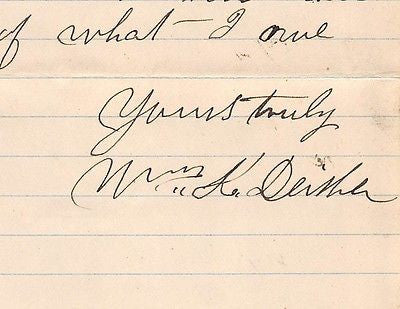 of what I owe
Yours truly
Wm K. Deisher